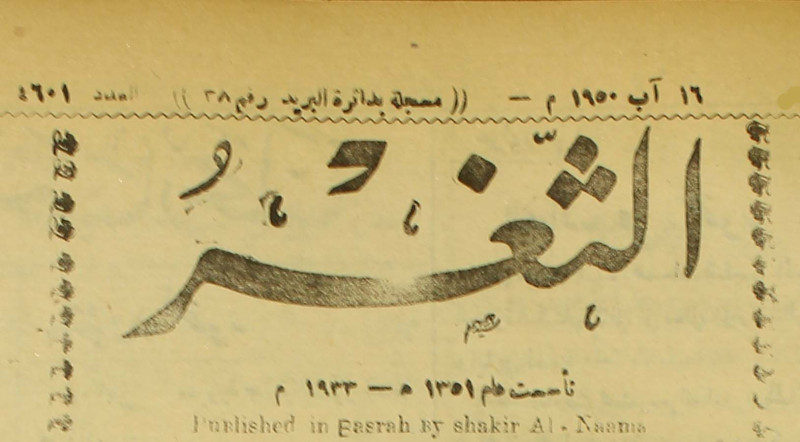 ١٦ آب ١٩٥٠ م — (( مسجلة بدائرة البريد رقم ٣٨ )) العدد ٤٦٠١
الثغر
تأسست عام ١٣٥١ ه — ١٩٣٣ م
Published in Basrah By shakir Al - Naama